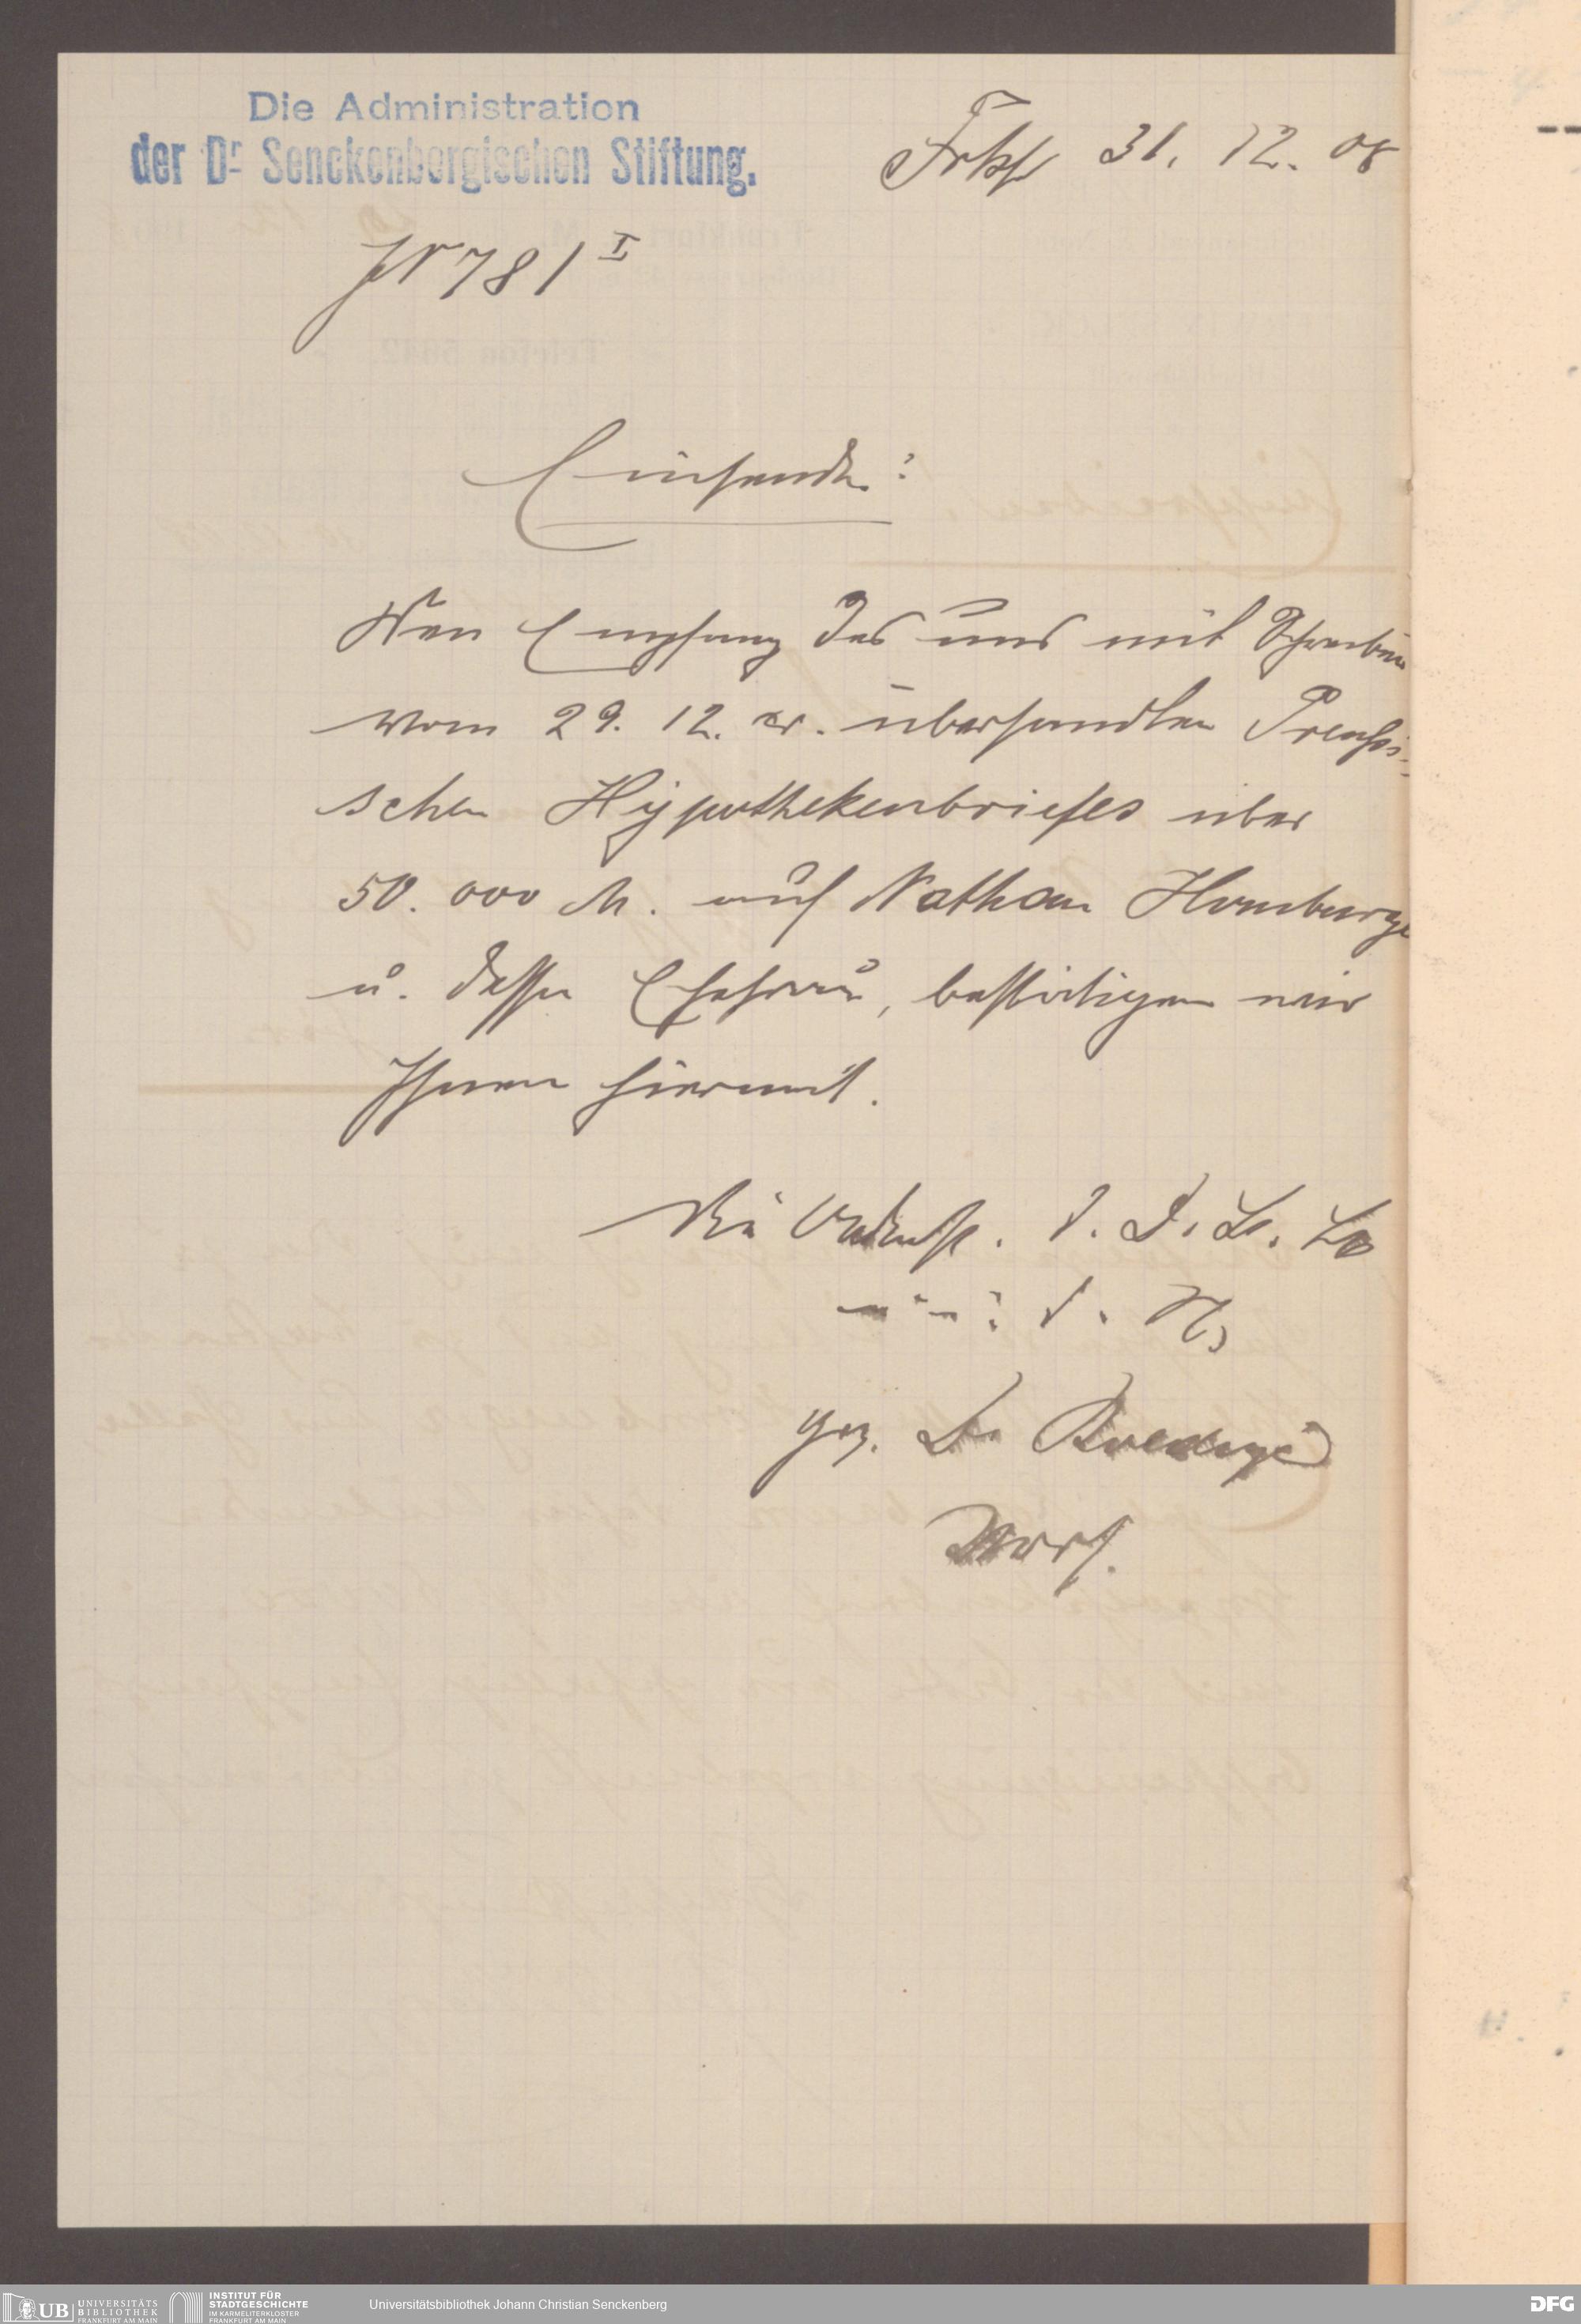 Die Administration
der Dr. Senckenbergischen Stiftung.
Frkf 31. 12. 08
JN 781 I
Einsender:
Den Empfang des uns mit Schreiben
vom 29. 12. cr. übersandten Preussi-
schen Hypothekenbriefes über
50.000 M. auf Nathan Homburger
u. dessen Ehefrau, bestätigen wir
Ihnen hiermit.
Die d. D. S. S.
: d. 
gez. Dr Roediger
Vors.
UB UNIVERSITÄTS
BIBLIOTHEK
FRANKFURT AM MAIN
INSTITUT FÜR
STADTGESCHICHTE
IM KARMELITERKLOSTER
FRANKFURT AM MAIN
Universitätsbibliothek Johann Christian Senckenberg
DFG